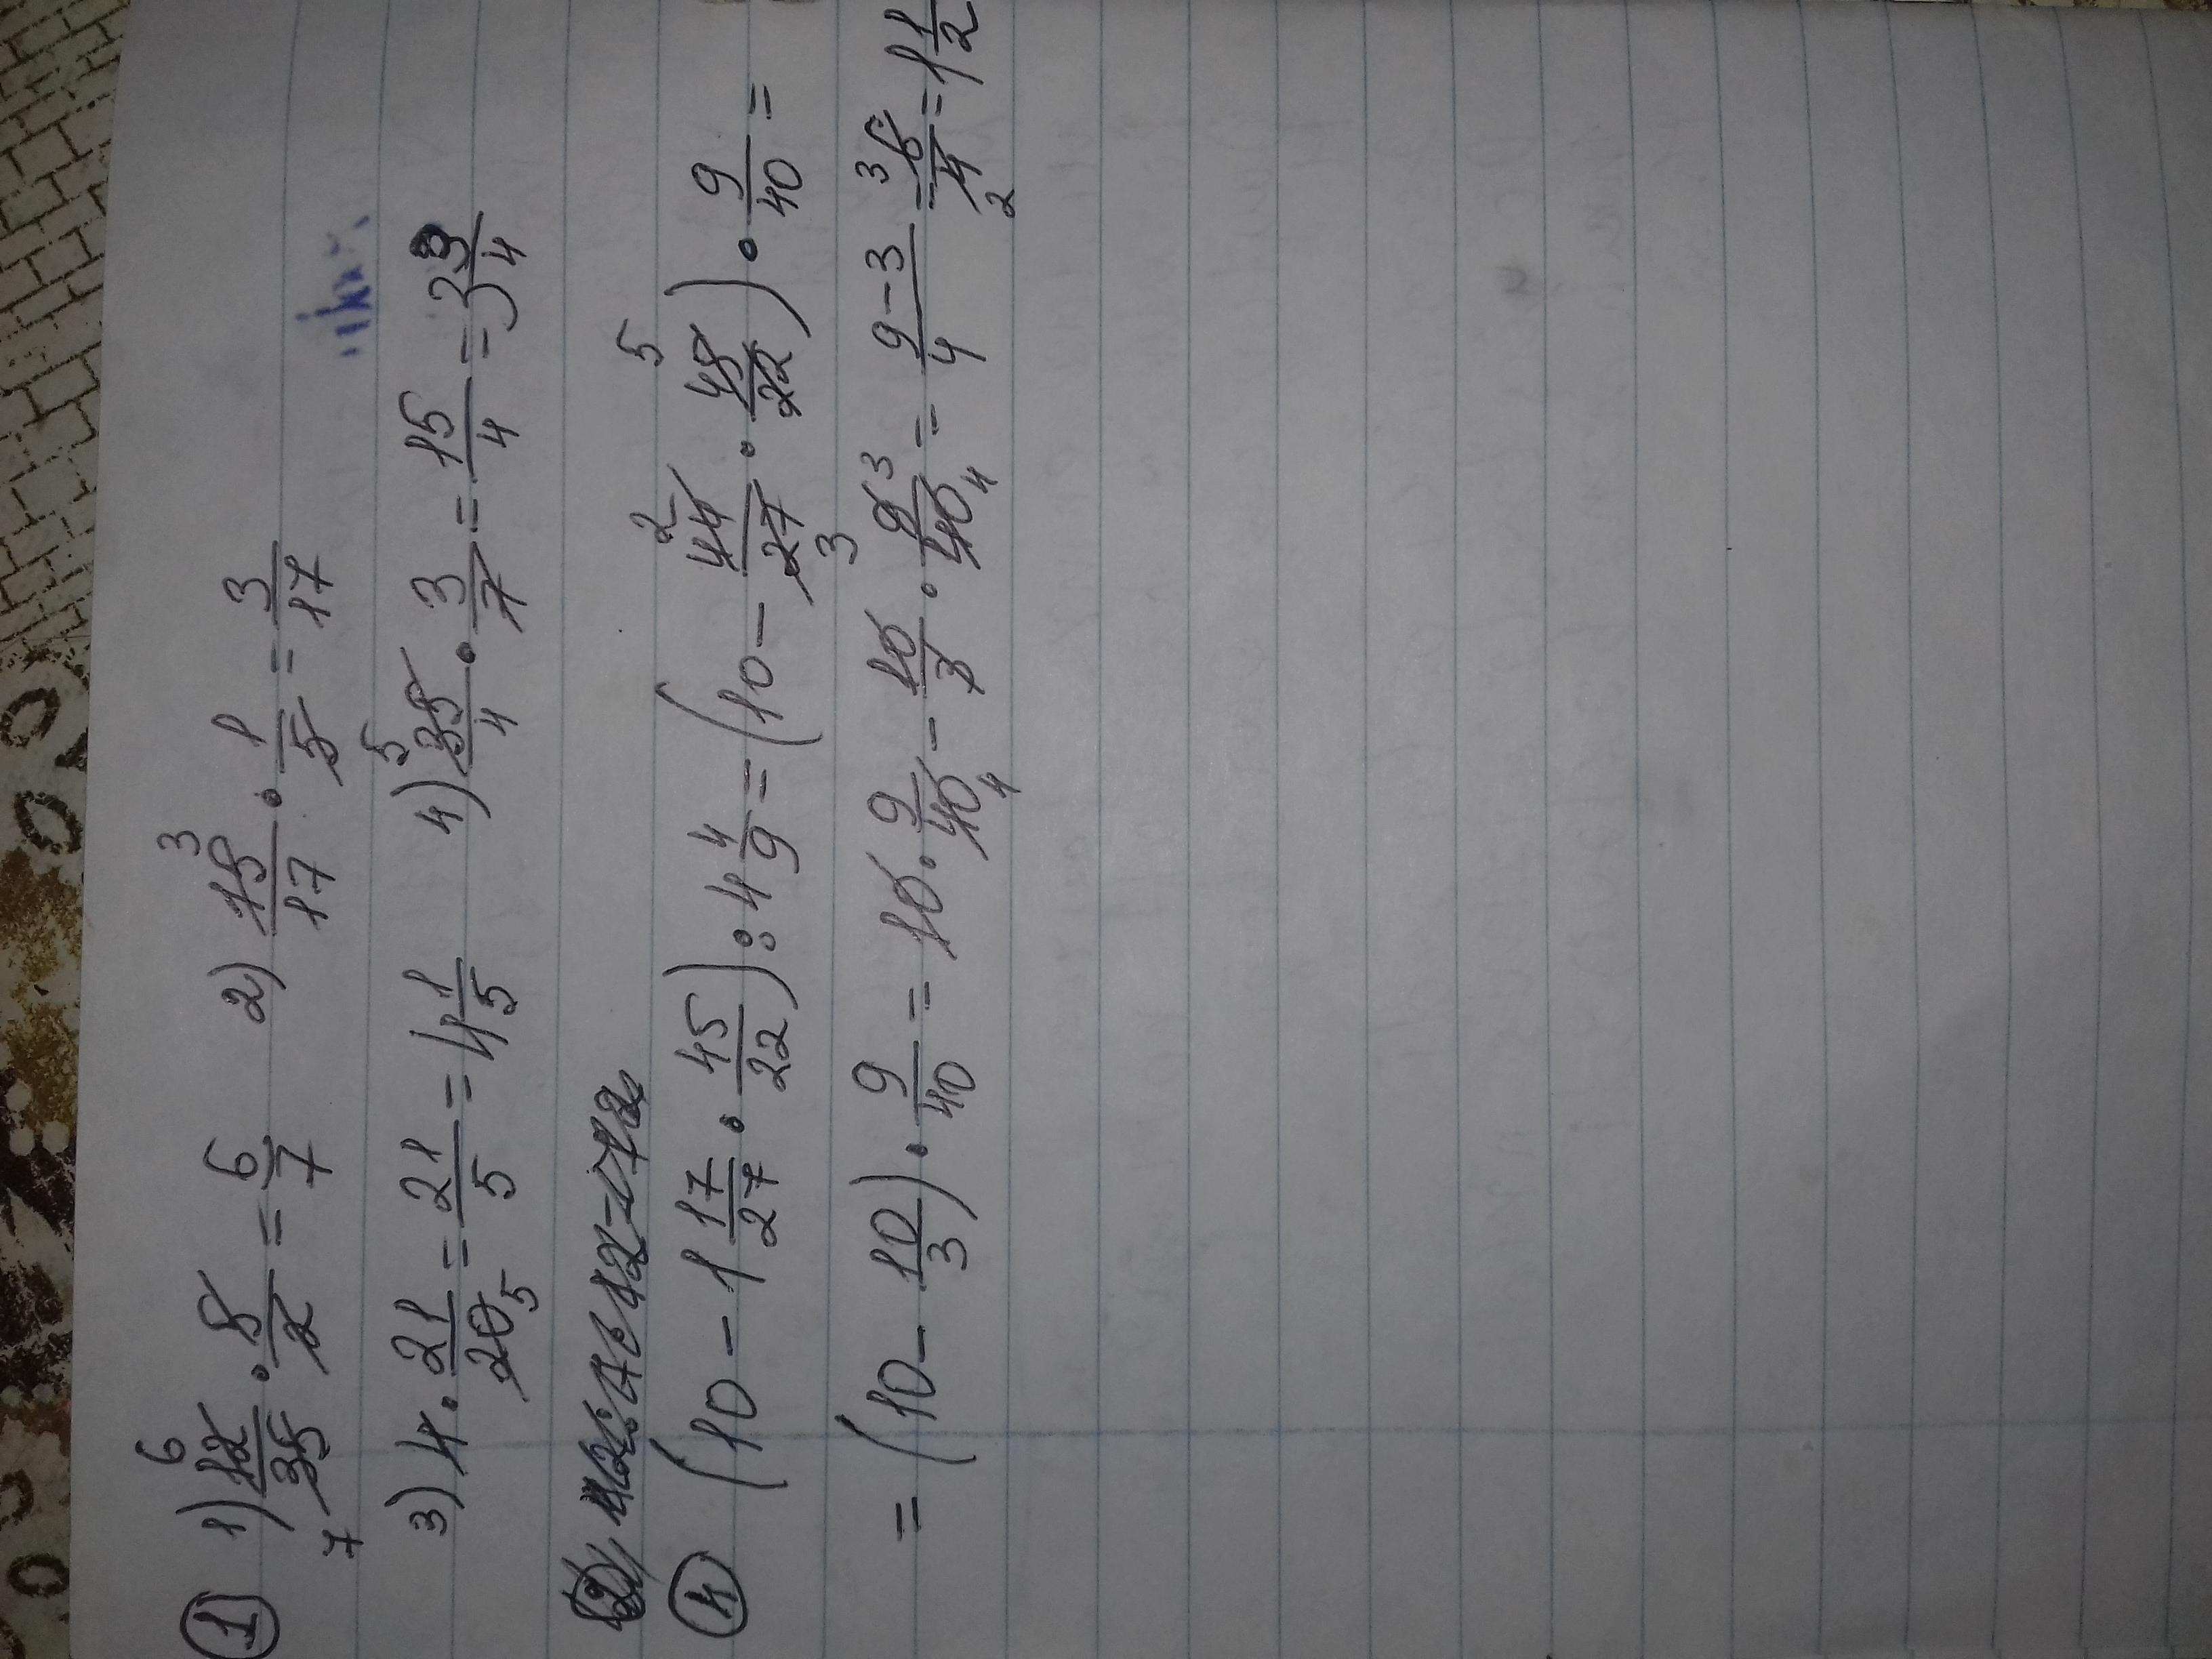 ① 1) 12/35 · 5/2 = 6/7 2) 15/17 · 1/5 = 3/17
3) 4 · 21/20 = 21/5 = 4 1/5 4) 35/4 · 3/7 = 15/4 = 3 3/4
④ (10 - 1 17/27 · 45/22) : 4 4/9 = (10 - 44/27 · 45/22) · 9/40 =
= (10 - 10/3) · 9/40 = 10 · 9/40 - 10/3 · 9/40 = 9-3/4 = 6/4 = 1 1/2